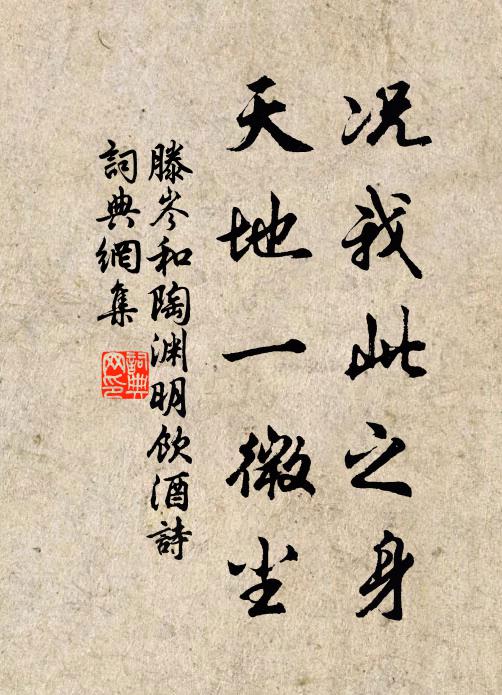 况我此之身
天地一微尘
滕岑和陶渊明饮酒詩
詞典網集
詞典
网印